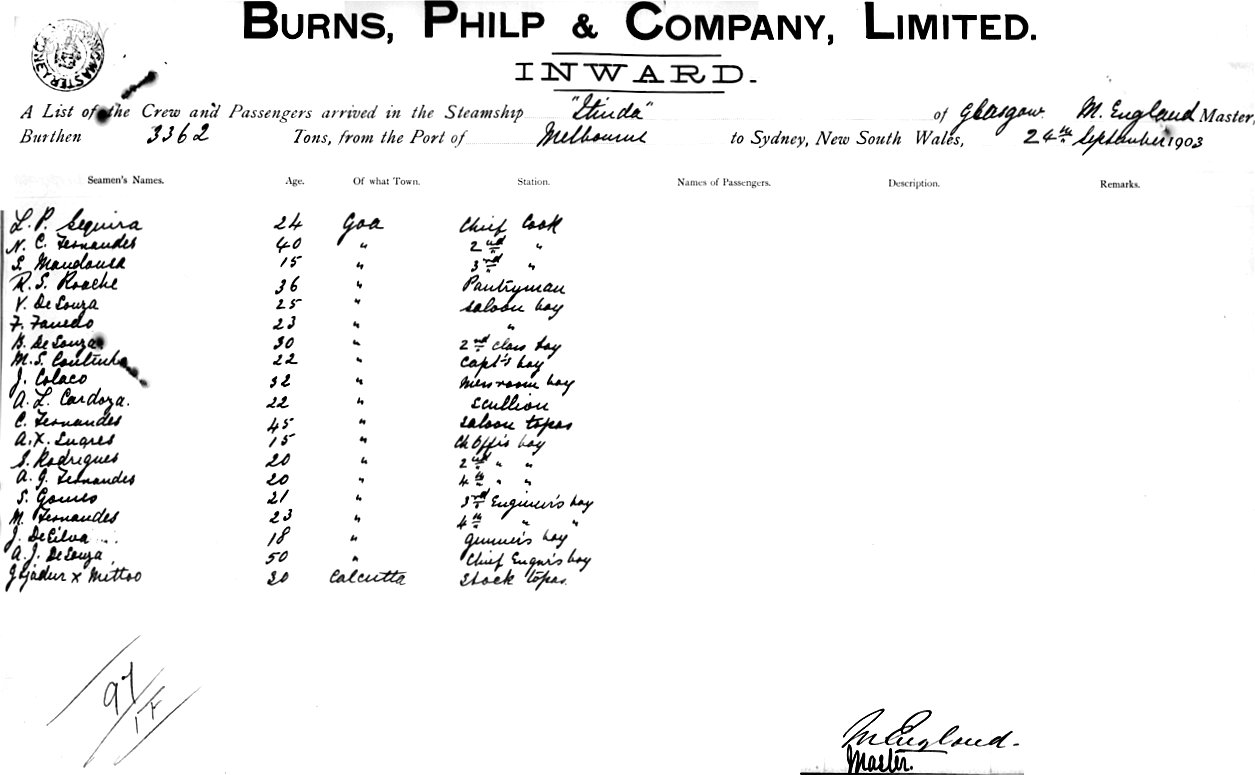 BURNS, PHILP & COMPANY, LIMITED.
INWARD.
A List of the Crew and Passengers arrived in the Steamship "Itinda" of Glasgow M. England Master,
Burthen 3362 Tons, from the Port of Melbourne to Sydney, New South Wales, 24th September 1903
Seamen's Names. Age. Of what Town. Station. Names of Passengers. Description. Remarks.
L. P. Sequira 24 Goa Chief Cook
N. C. Fernandes 40 " 2nd "
S. 15 " 3rd "
R. S. Roache 36 " Pantryman
V. De Souza 25 " Saloon boy
F. 23 " "
B. De Souza 30 " 2nd class boy
M. S. Coutinho 22 " Capt's boy
J. Colaco 32 " Messroom boy
A. L. Cardoza. 22 " Scullion
C. Fernandes 45 " Saloon topas
A. X. 15 " Ch Off's boy
S. Rodrigues 20 " 2nd " "
A. J. Fernandes 20 " 4th " "
S. Gomes 21 " 3rd Engineer's boy
M. Fernandes 23 " 4th " "
J. DeSilva 18 " gunner's boy
A. J. De Souza 50 " Chief Engnr's boy
x Mittoo 30 Calcutta topas.
97
1F
M England.
Master.